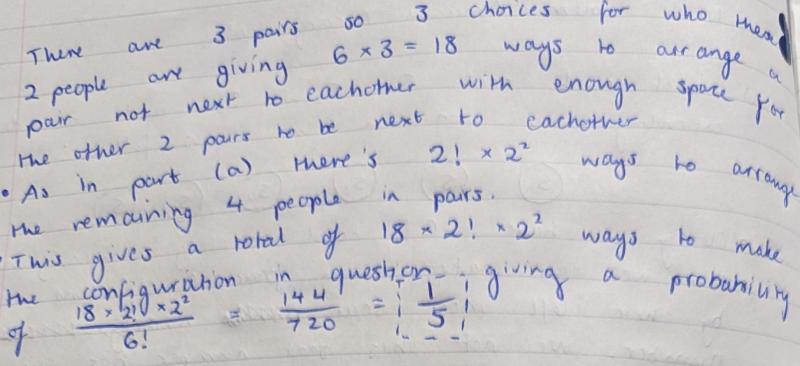 There are 3 pairs so 3 choices for who these
2 people are giving 6 × 3 = 18 ways to arrange a
pair not next to eachother with enough space for
the other 2 pairs to be next to eachother
• As in part (a) there's 2! × 2² ways to arrange
the remaining 4 people in pairs.
• This gives a total of 18 × 2! × 2² ways to make
the configuration in question giving a probability
of 18 × 2! × 2² / 6! = 144 / 720 = 1 / 5